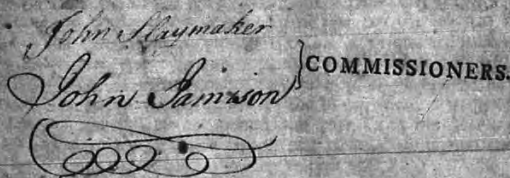 John Slaymaker
John Jamison
} COMMISSIONERS.